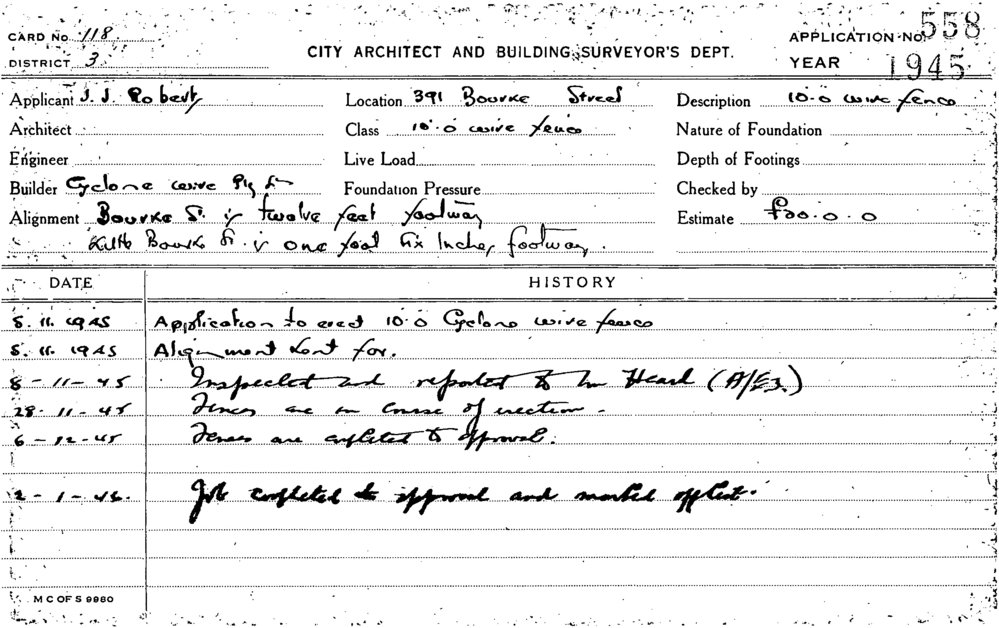 CARD No 118 CITY ARCHITECT AND BUILDING SURVEYOR'S DEPT. APPLICATION No. 558
DISTRICT 3 YEAR 1945
Applicant J. J. Roberts Location 391 Bourke Street Description 10.0 wire fence
Architect Class 10.0 wire fence Nature of Foundation
Engineer Live Load Depth of Footings
Builder Cyclone wire Foundation Pressure Checked by
Alignment Bourke St. is twelve feet footway Estimate £20.0.0
Little Bourke St. is one foot six Inches footway.
DATE HISTORY
5. 11. 1945 Application to erect 10.0 Cyclone wire fence
5. 11. 1945 Alignment sent for.
8 - 11 - 45 Inspected and reported to Mr Heard
28. 11 - 45 Fences are in course of erection.
6 - 12 - 45 Fences are completed to approval.
2 - 1 - 46. Job completed to approval and marked off list.
M C OF S 9980